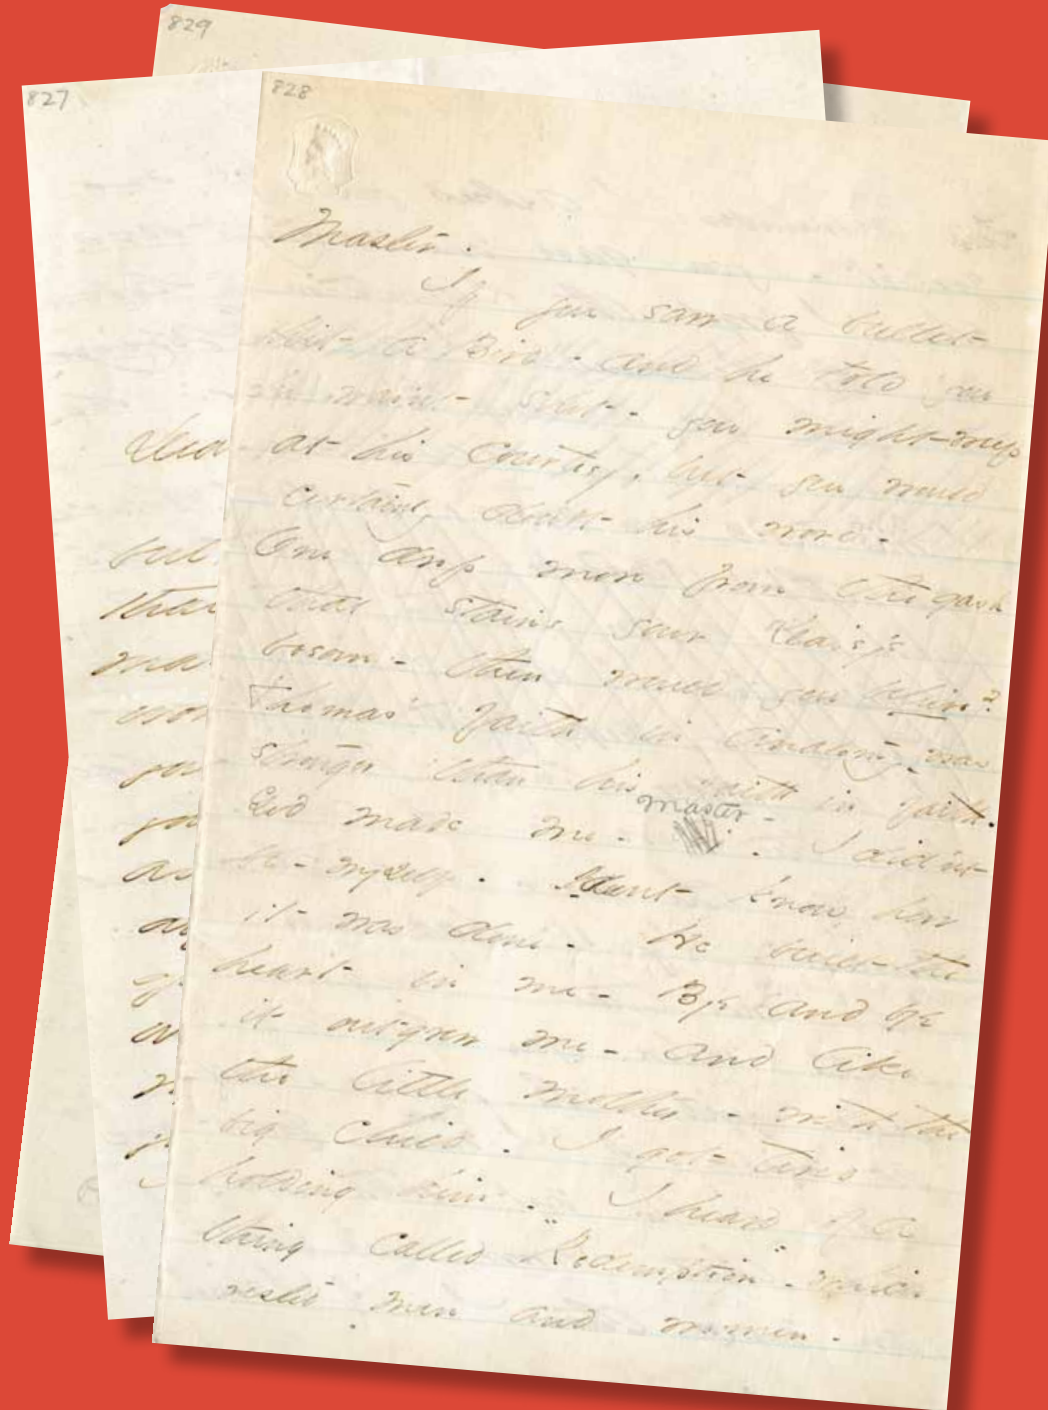 829
827
828
Master.
If you saw a bullet
hit a Bird - and he told you
he wasn't shot - you might weep
at his courtesy, but you would
certainly doubt his word -
One drop more from the gash
that stains your Daisy's
bosom - then would you believe?
Thomas' faith in Anatomy, was
stronger than his faith in faith.
God made me - Master - I didn't
be - myself. I dont know how
it was done - He built the
heart in me - Bye and bye
it outgrew me - and like
the little mother - with the
big child - I got tired
holding him - I heard of a
thing called "Redemption" - which
rested men and women -